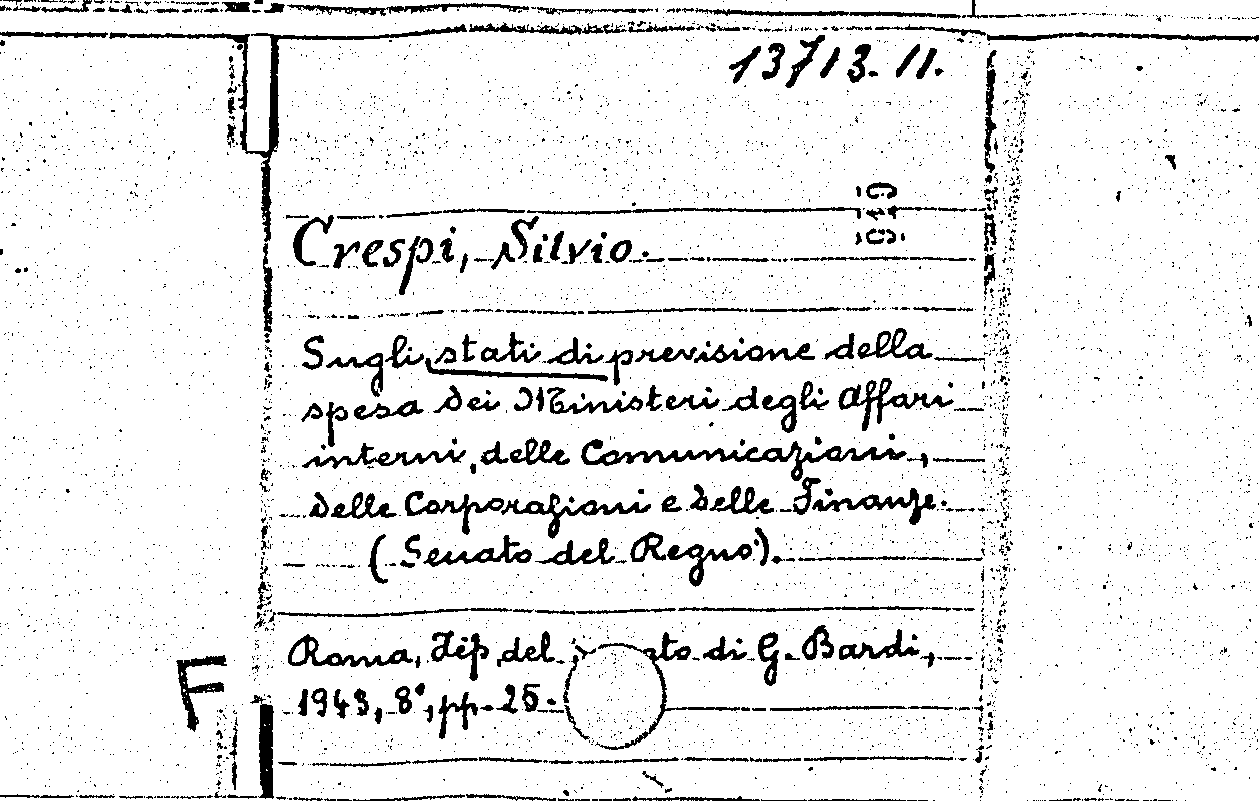 13713. 11.
919
Crespi, Silvio.
Sugli stati di previsione della
spesa dei Ministeri degli Affari
interni, delle Comunicazioni,
delle Corporazioni e delle Finanze.
(Senato del Regno).
Roma, Tip. del ato di G. Bardi,
1943, 8°, pp. 25.
F